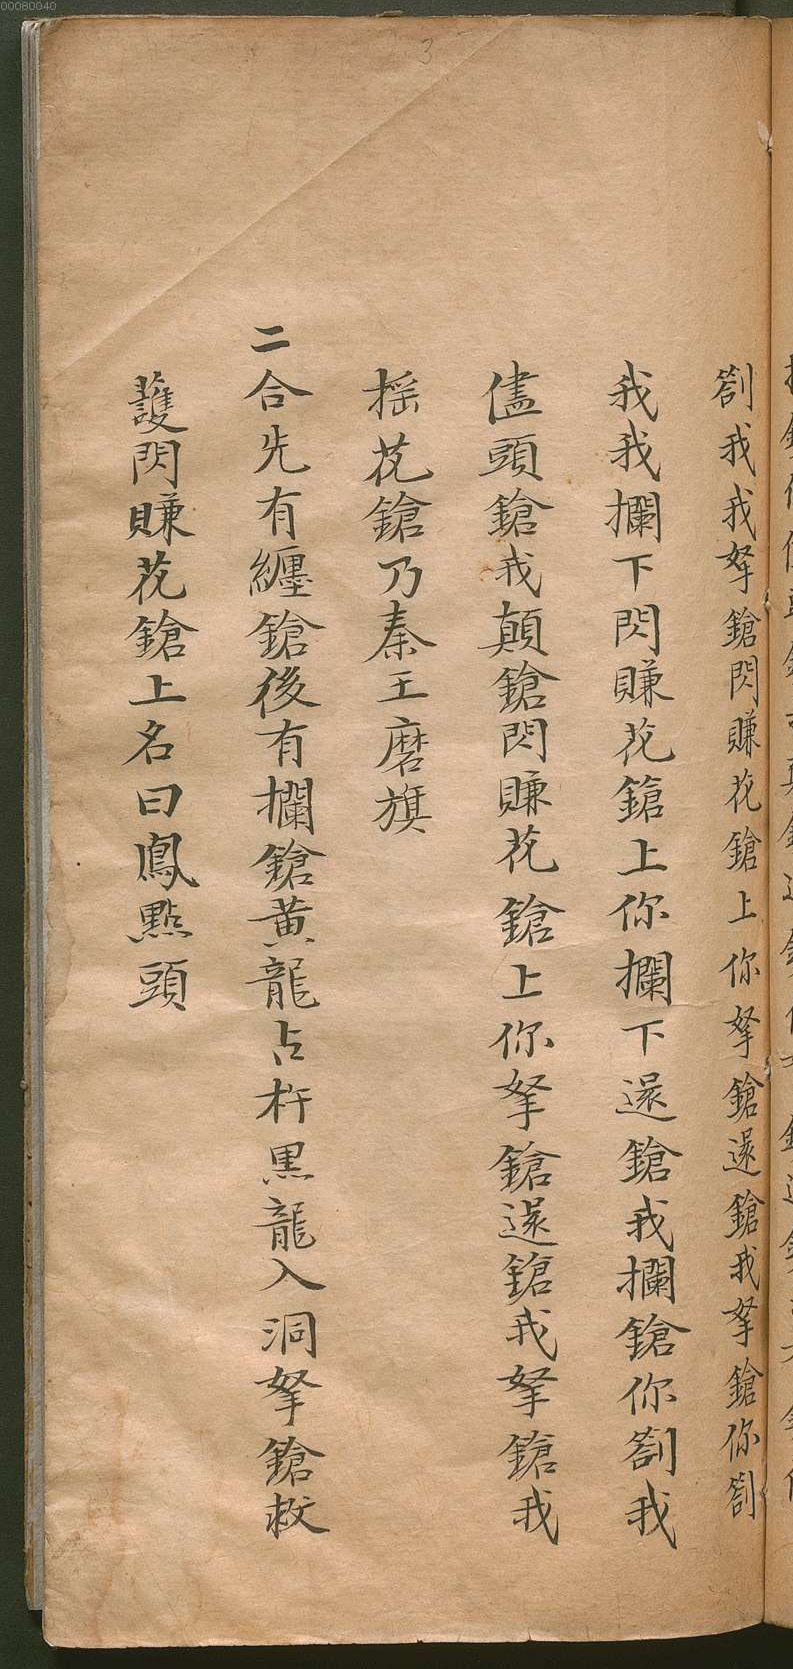 00080040
3
劄我我拏鎗閃賺花鎗上你拏鎗還鎗我拏鎗你劄
我我攔下閃賺花鎗上你攔下還鎗我攔鎗你劄我
儘頭鎗我顛鎗閃賺花鎗上你拏鎗還鎗我拏鎗我
搖花鎗乃秦王磨旗
二合先有纏鎗後有攔鎗黃龍占杵黑龍入洞拏鎗救
護閃賺花鎗上名曰鳳點頭